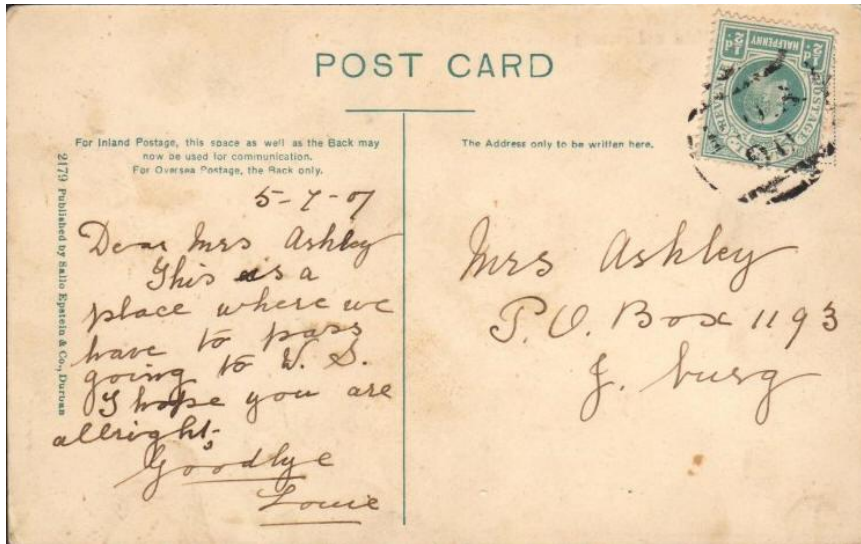 POST CARD
For Inland Postage, this space as well as the Back may
now be used for communication.
For Oversea Postage, the Back only.
The Address only to be written here.
2179 Published by Sallo Epstein & Co., Durban
5-7-07
Dear Mrs Ashley
This is a
place where we
have to pass
going to W. S.
I hope you are
allright,
Goodbye
Louie
Mrs Ashley
P.O. Box 1193
J. burg
½d HALFPENNY ½d
POSTAGE